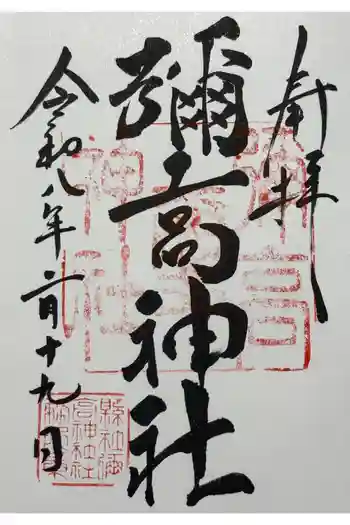 奉拝
彌高神社
令和八年二月十九日
彌高
神社
縣社彌
高神社社